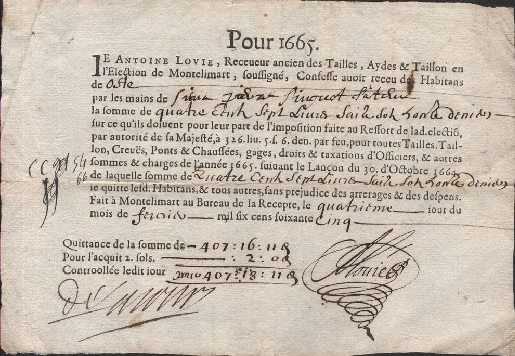 Pour 1665.
IE ANTOINE LOVIE, Receueur ancien des Tailles, Aydes & Taillon en
l'Election de Montelimart, soussigné, Confesse auoir receu des Habitans
de Aste
par les mains de sieur
la somme de quatre Cents Sept Liures Saise Sols honse deniers
sur ce qu'ils doiuent pour leur part de l'imposition faite au Ressort de lad. electiõ,
par autorité de sa Majesté, à 326. liu. 5. s. 6. den. par feu, pour toutes Tailles, Tail-
lon, Creuës, Ponts & Chaussées, gages, droits & taxations d'Officiers, & autres
sommes & charges de l'année 1665. suiuant le Lançon du 30. d'Octobre 1664.
de laquelle somme de Quatre Cents Sept Liures Saise Sols honse deniers
ie quitte lesd. Habitans, & tous autres, sans prejudice des arrerages & des despens.
Fait à Montelimart au Bureau de la Recepte, le quatrieme iour du
mois de feurier mil six cens soixante Cinq
Quittance de la somme de 407:16:11d
Pour l'acquit 2. sols. :2:0d
Controollée ledit iour 407:18:11d
Llouie